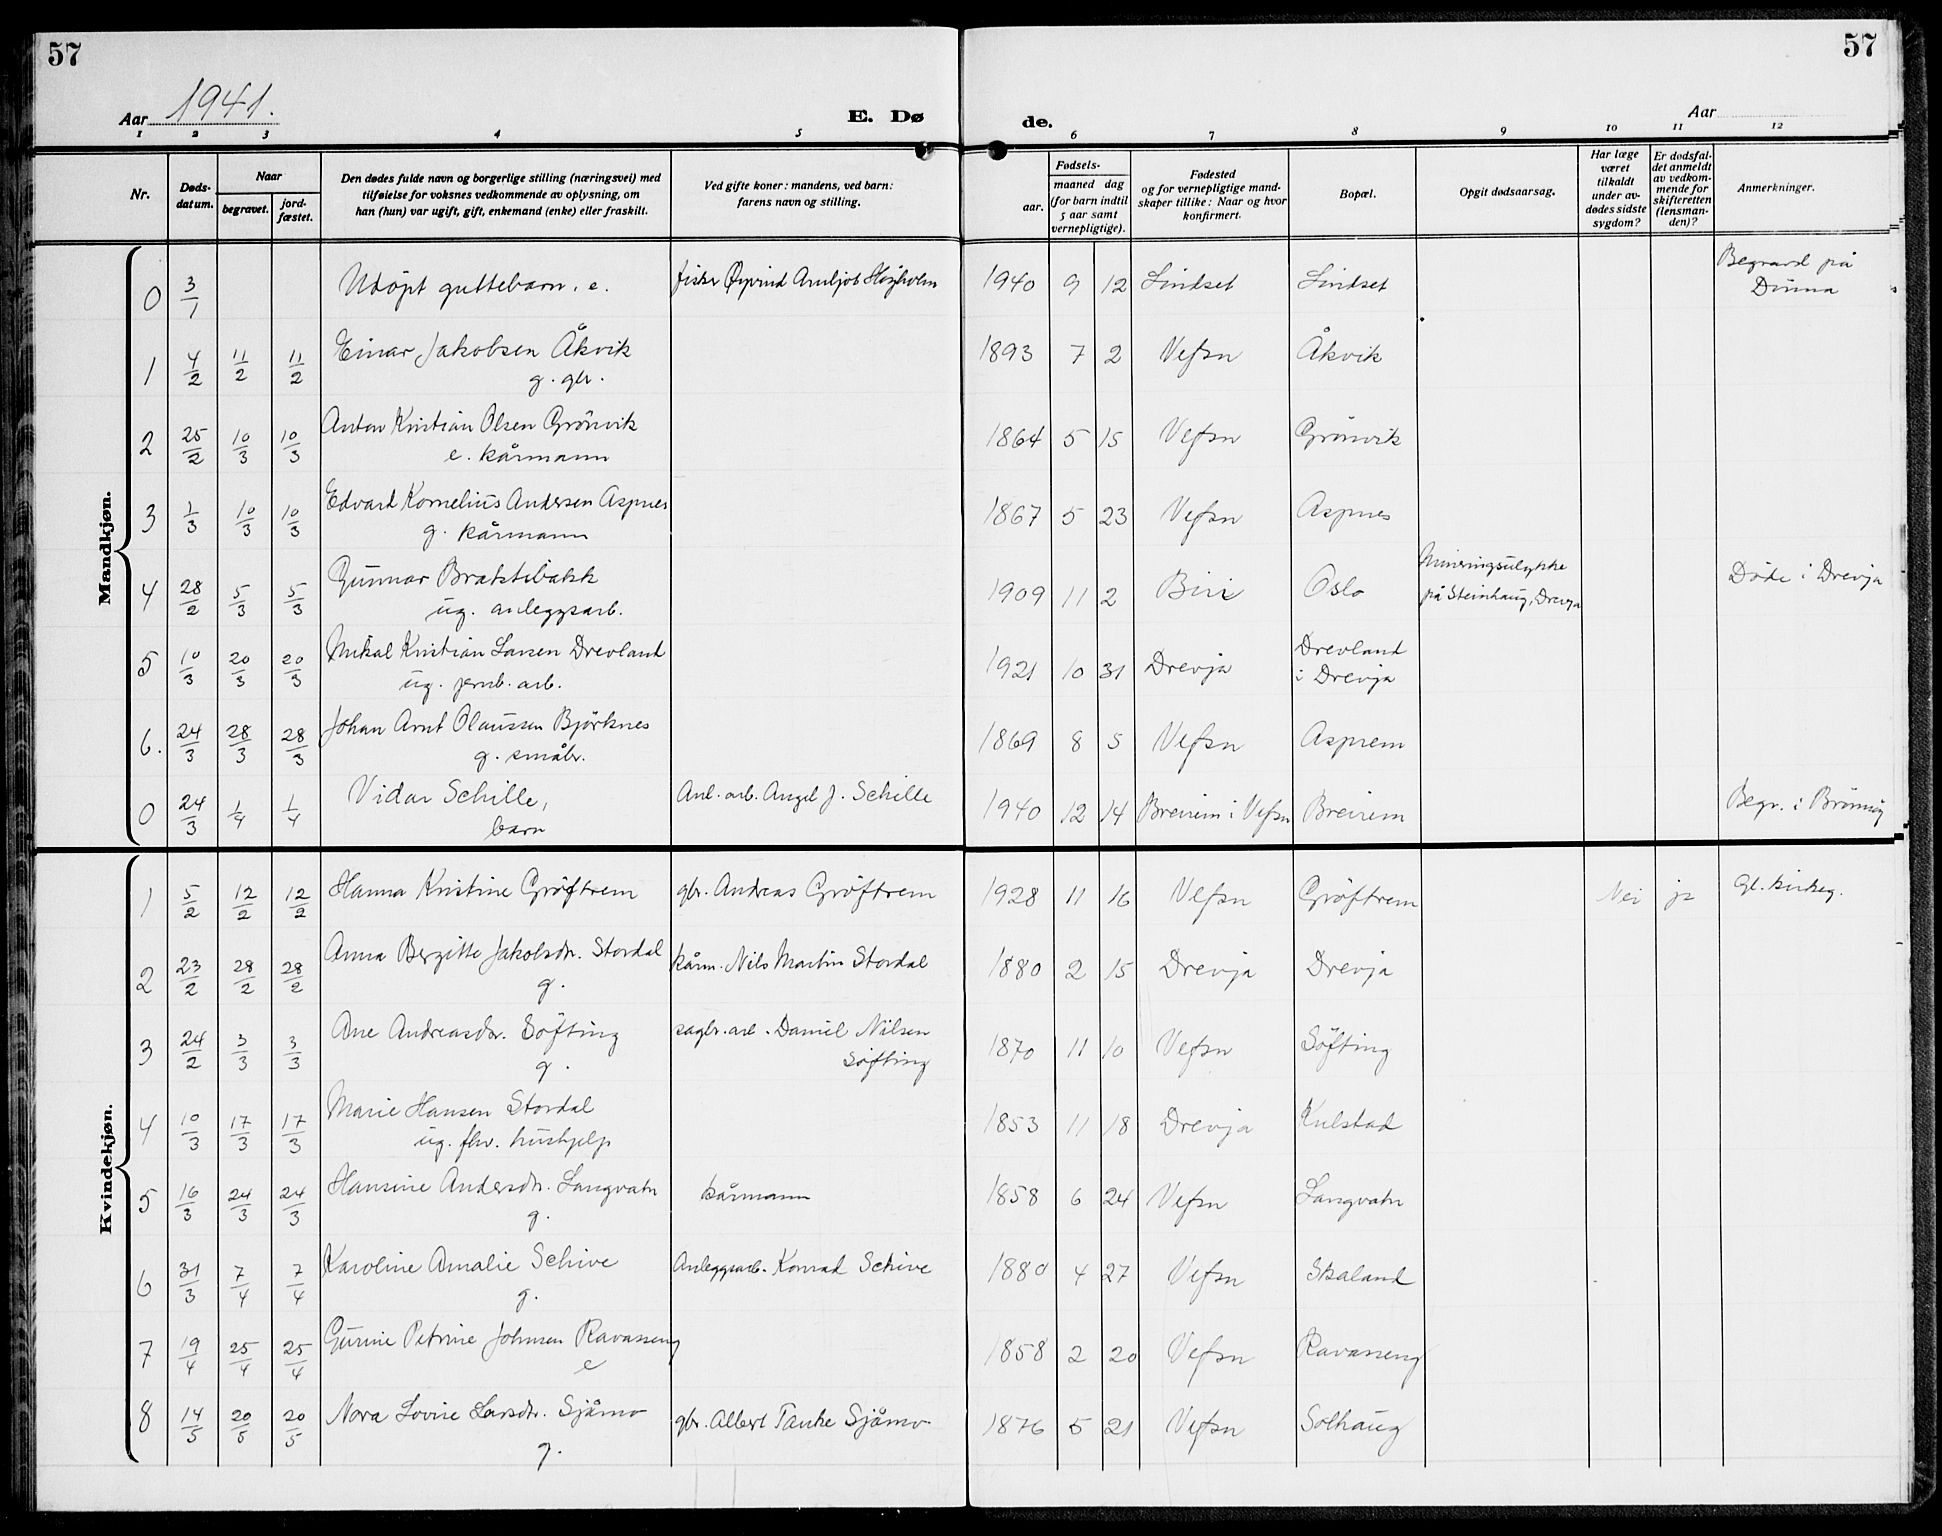 57
57
Aar 1941.
E. Dø
de.
Aar
1 2 3 4 5 6 7 8 9 10 11 12
Nr.
Døds-
datum.
Naar
begravet.
jord-
fæstet.
Den dødes fulde navn og borgerlige stilling (næringsvei) med
tilføielse for voksnes vedkommende av oplysning, om
han (hun) var ugift, gift, enkemand (enke) eller fraskilt.
Ved gifte koner: mandens, ved barn:
farens navn og stilling.
Fødsels-
aar.
maaned dag
(for barn indtil
5 aar samt
vernepligtige).
Fødested
og for vernepligtige mand-
skaper tillike: Naar og hvor
konfirmert.
Bopæl.
Opgit dødsaarsag.
Har læge
været
tilkaldt
under av-
dødes sidste
sygdom?
Er dødsfal-
det anmeldt
av vedkom-
mende for
skifteretten
(lensman-
den)?
Anmerkninger.
Mandkjøn.
0 3/1 Udöpt guttebarn, e. fisker Øyvind Arnljot Høyholm 1940 9 12 Lindset Lindset Begravd på
Dönna
1 4/2 11/2 11/2 Einar Jakobsen Åkvik 1893 7 2 Vefsn Åkvik
g. gbr.
2 25/2 10/3 10/3 Anton Kristian Olsen Grönvik 1864 5 15 Vefsn Grönvik
e. kårmann
3 1/3 10/3 10/3 Edvard Kornelius Andersen Aspnes 1867 5 23 Vefsn Aspnes
g. kårmann
4 28/2 5/3 5/3 Gunnar Brattibakk 1909 11 2 Biri Oslo Mineringsulykke
på Steinhaug, Drevja Döde i Drevja
ug. anleggsarb.
5 10/3 20/3 20/3 Mikal Kristian Larsen Drevland 1921 10 31 Drevja Drevland
i Drevja
ug. jernb. arb.
6. 24/3 28/3 28/3 Johan Arnt Olaussen Björknes 1869 8 5 Vefsn Asprem
g. småbr.
0 24/3 1/4 1/4 Vidar Schille, Anl. arb. Angel J. Schille 1940 12 14 Breirem i Vefsn Breirem Begr. i Brönnöy
barn
Kvindekjøn.
1 5/2 12/2 12/2 Hanna Kristine Gröftrem gbr. Andreas Gröftrem 1928 11 16 Vefsn Gröftrem Nei ja Gl. kirkeg.
2 23/2 28/2 28/2 Anna Bergitte Jakobsdtr. Stordal kårm. Nils Martin Stordal 1880 2 15 Drevja Drevja
g.
3 24/2 3/3 3/3 Ane Andreasdtr. Söfting sagbr. arb. Daniel Nilsen
Söfting 1870 11 10 Vefsn Söfting
g.
4 10/3 17/3 17/3 Marie Hansen Stordal 1853 11 18 Drevja Kulstad
ug. fhv. hushjelp
5 16/3 24/3 24/3 Hansine Andersdtr. Langvatn kårmann 1858 6 24 Vefsn Langvatn
g.
6 31/3 7/4 7/4 Karoline Amalie Schive Anleggsarb. Konrad Schive 1880 4 27 Vefsn Skaland
g.
7 19/4 25/4 25/4 Gurine Petrine Johnsen Ravasseng 1858 2 20 Vefsn Ravasseng
e
8 14/5 20/5 20/5 Nora Lovise Larsdtr. Sjåmo gbr. Albert Tanke Sjåmo 1876 5 21 Vefsn Solhaug
g.